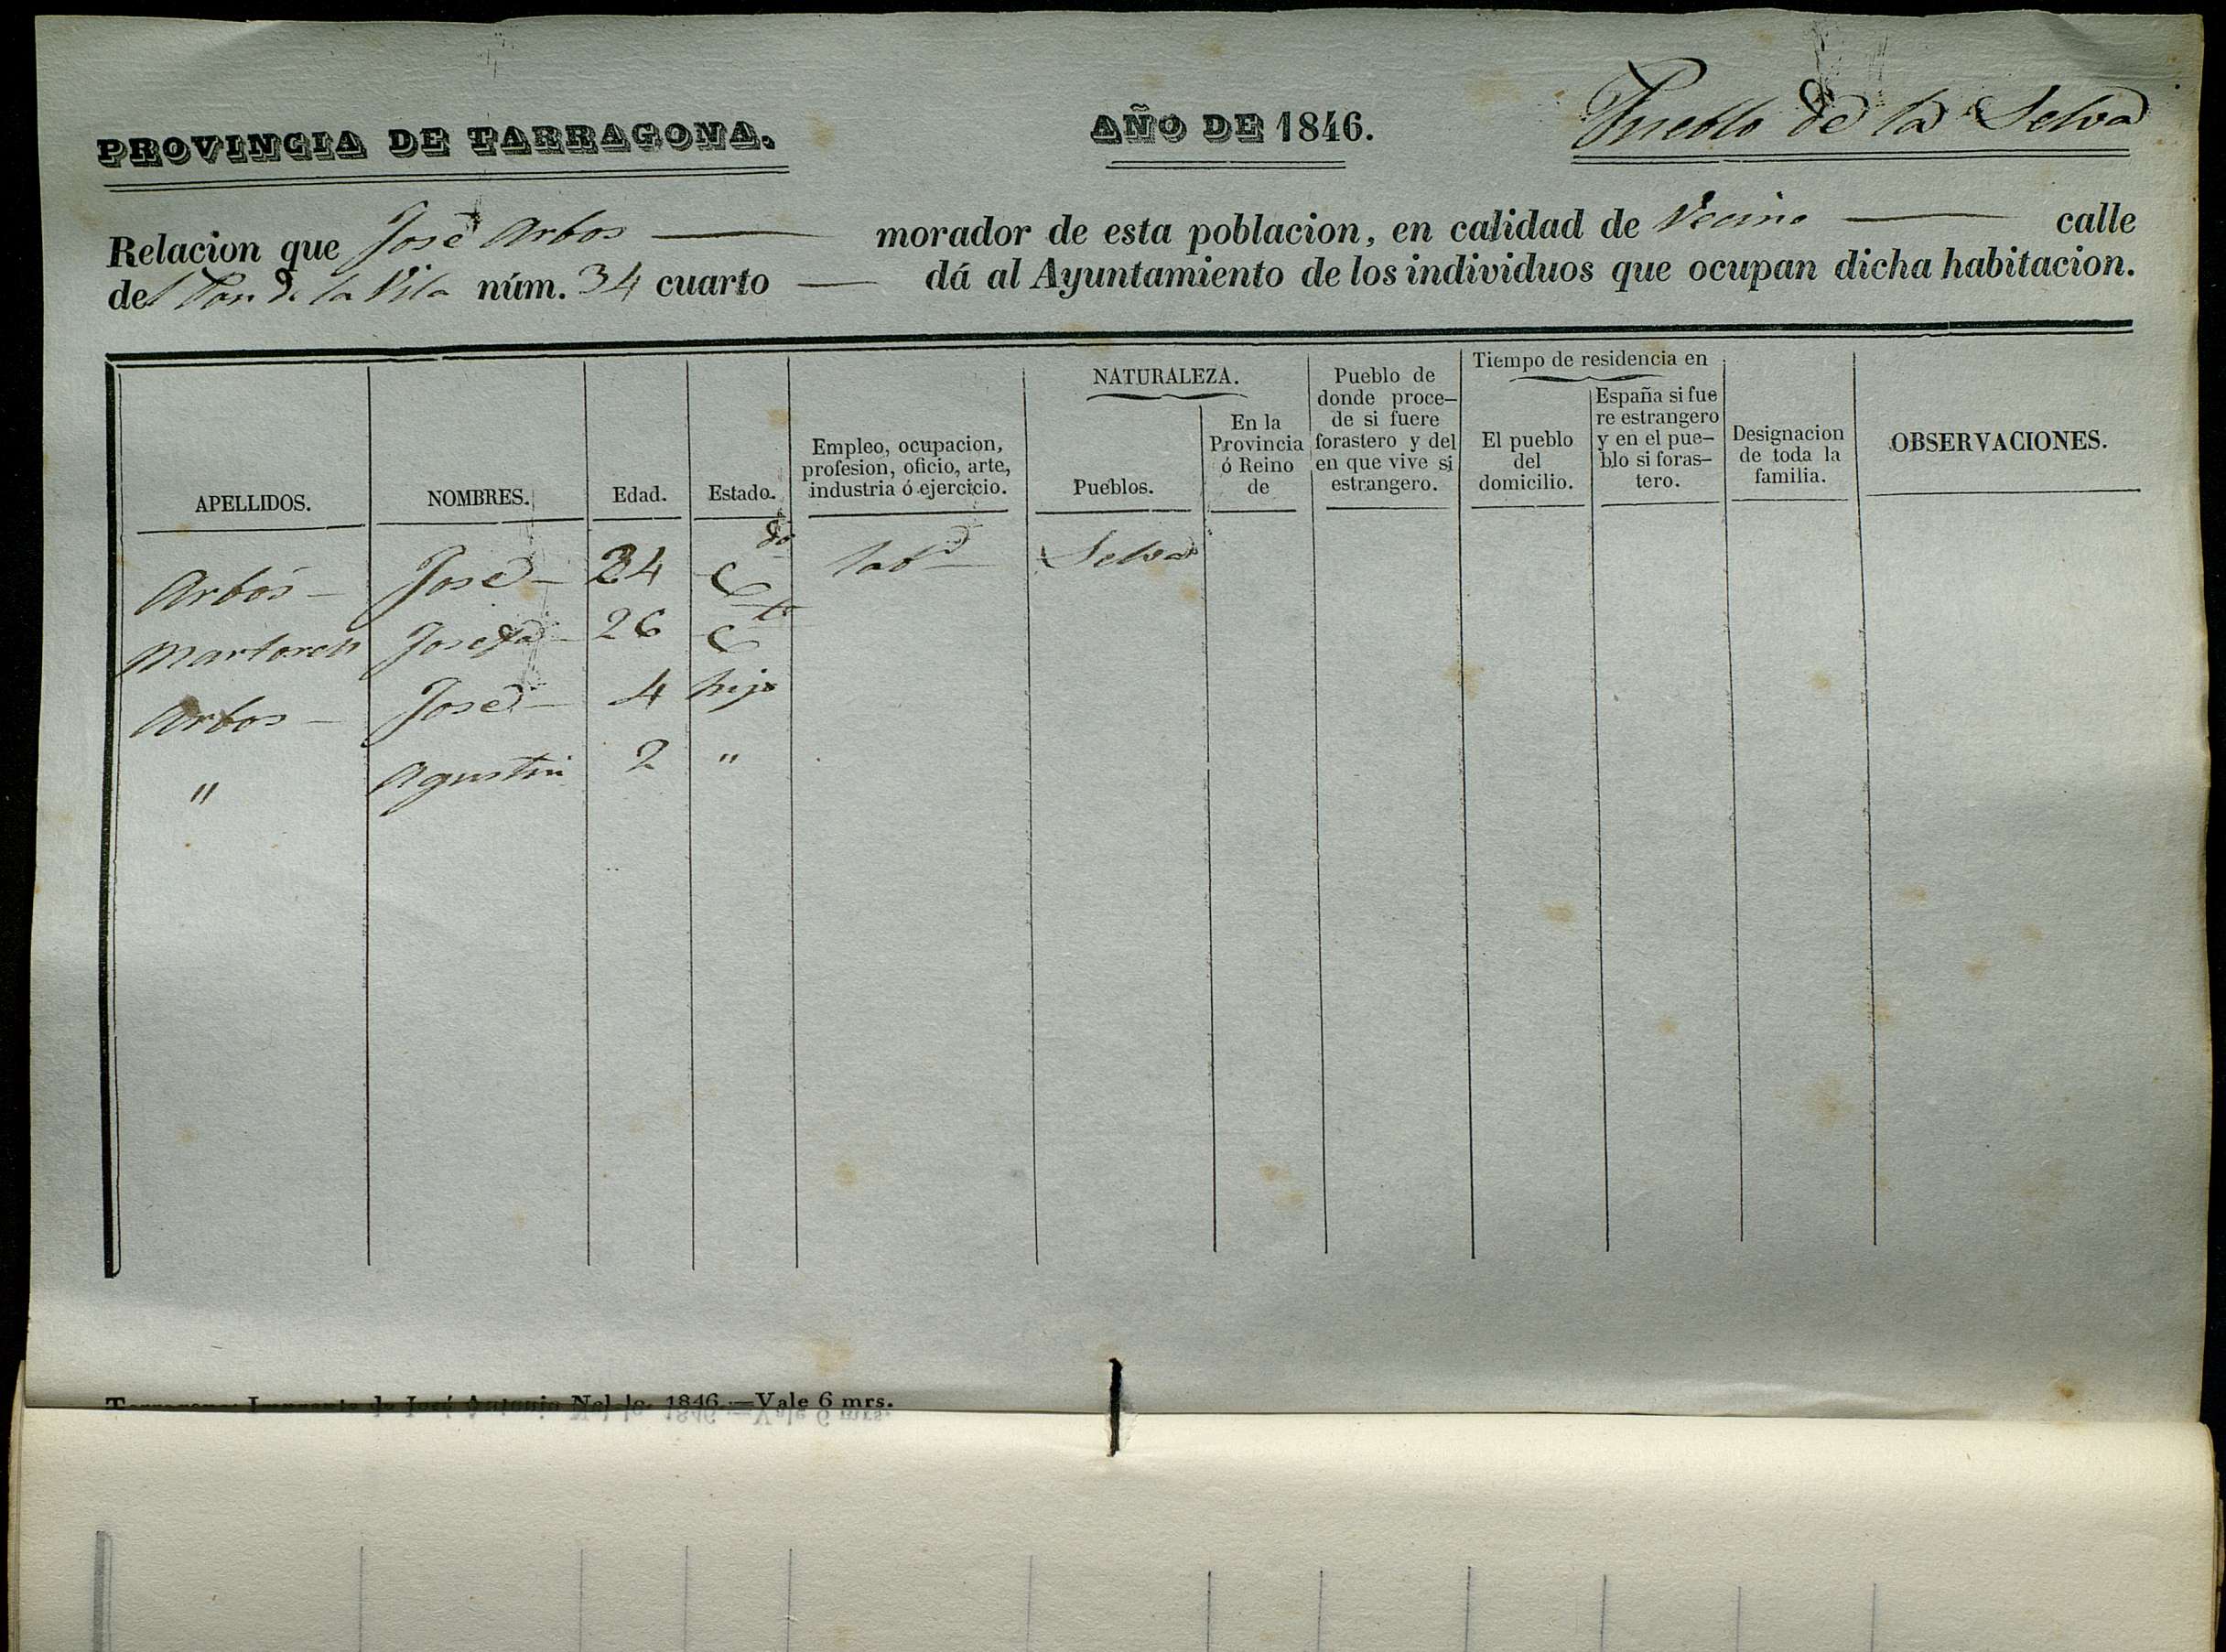 PROVINCIA DE TARRAGONA. AÑO DE 1846. Pueblo de la Selva
Relacion que José Arbos morador de esta poblacion, en calidad de Vecino calle
del de la Vila núm. 34 cuarto — dá al Ayuntamiento de los individuos que ocupan dicha habitacion.
APELLIDOS.
NOMBRES.
Edad.
Estado.
Empleo, ocupacion,
profesion, oficio, arte,
industria ó ejercicio.
NATURALEZA.
Pueblos.
En la
Provincia
ó Reino
de
Pueblo de
donde proce-
de si fuere
forastero y del
en que vive si
estrangero.
Tiempo de residencia en
El pueblo
del
domicilio.
España si fue
re estrangero
y en el pue-
blo si foras-
tero.
Designacion
de toda la
familia.
OBSERVACIONES.
Arbós — José — 34 C.do labd Selva
Martorell Josefa — 26 C.ta
Arbos — José — 4 hijo
" Agustin 2 "
1846.—Vale 6 mrs.